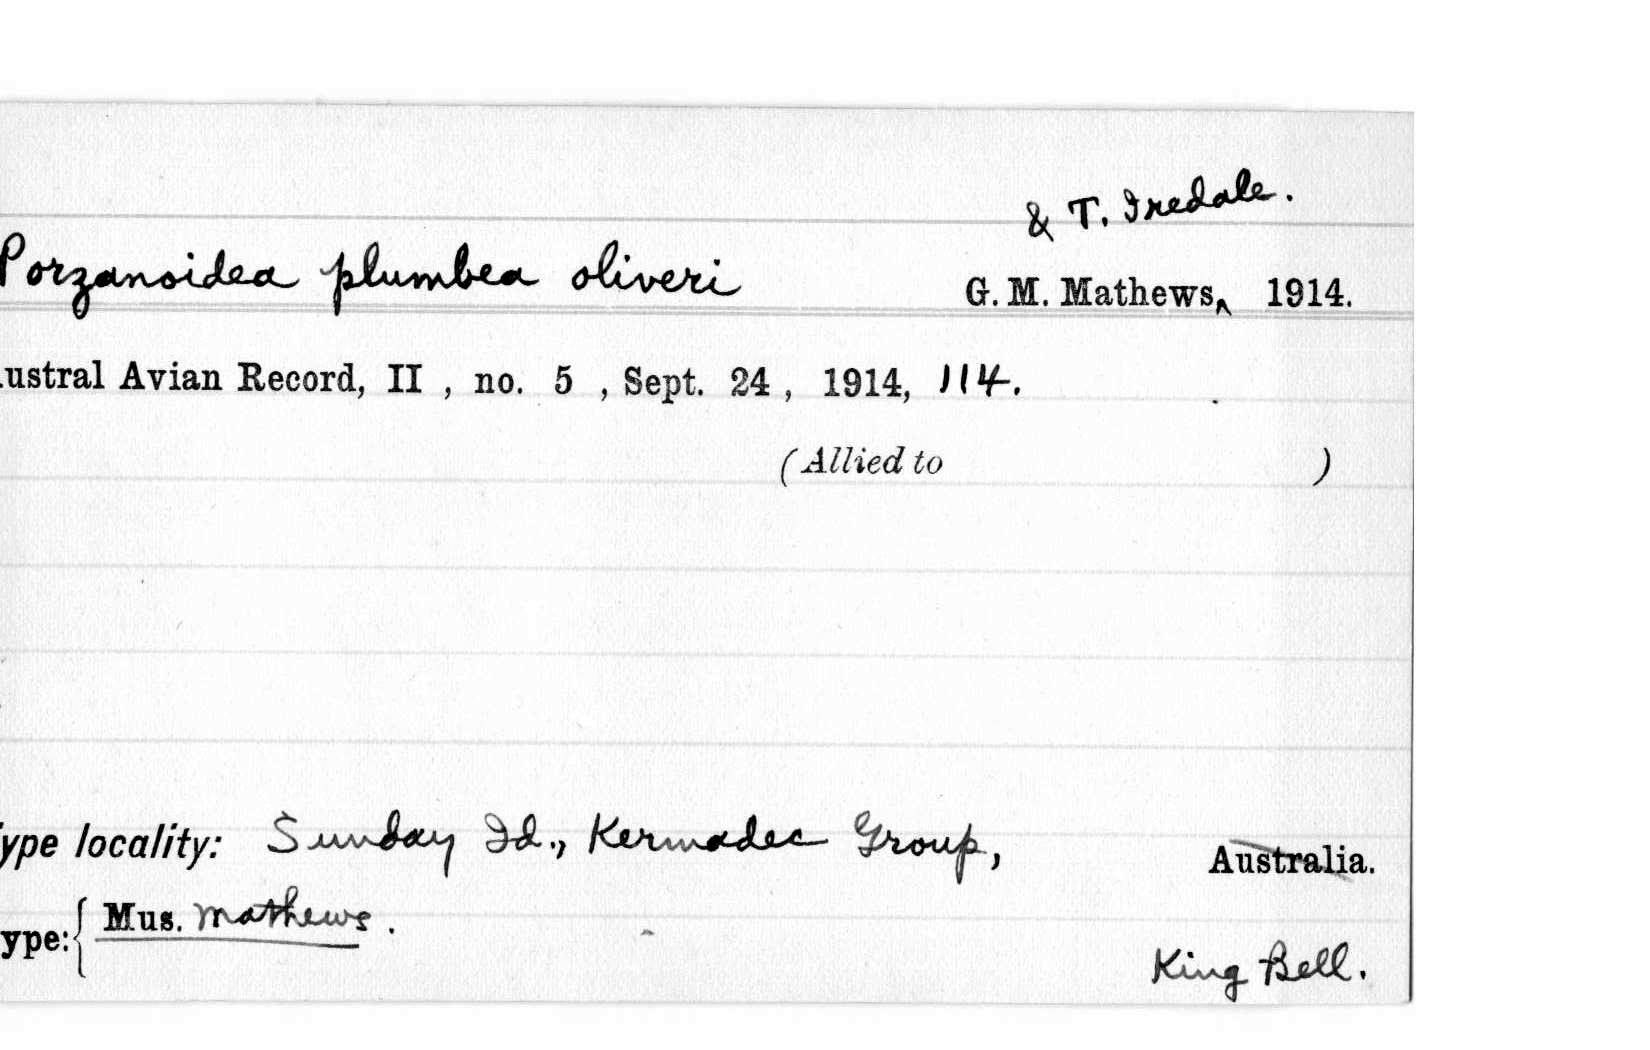 & T. Iredale.
Porzanoidea plumbea oliveri G. M. Mathews, ^ 1914.
ustral Avian Record, II , no. 5 , Sept. 24 , 1914, 114.
(Allied to )
ype locality: Sunday Id., Kermadec Group, Australia.
ype: { Mus. Mathews.
King Bell.